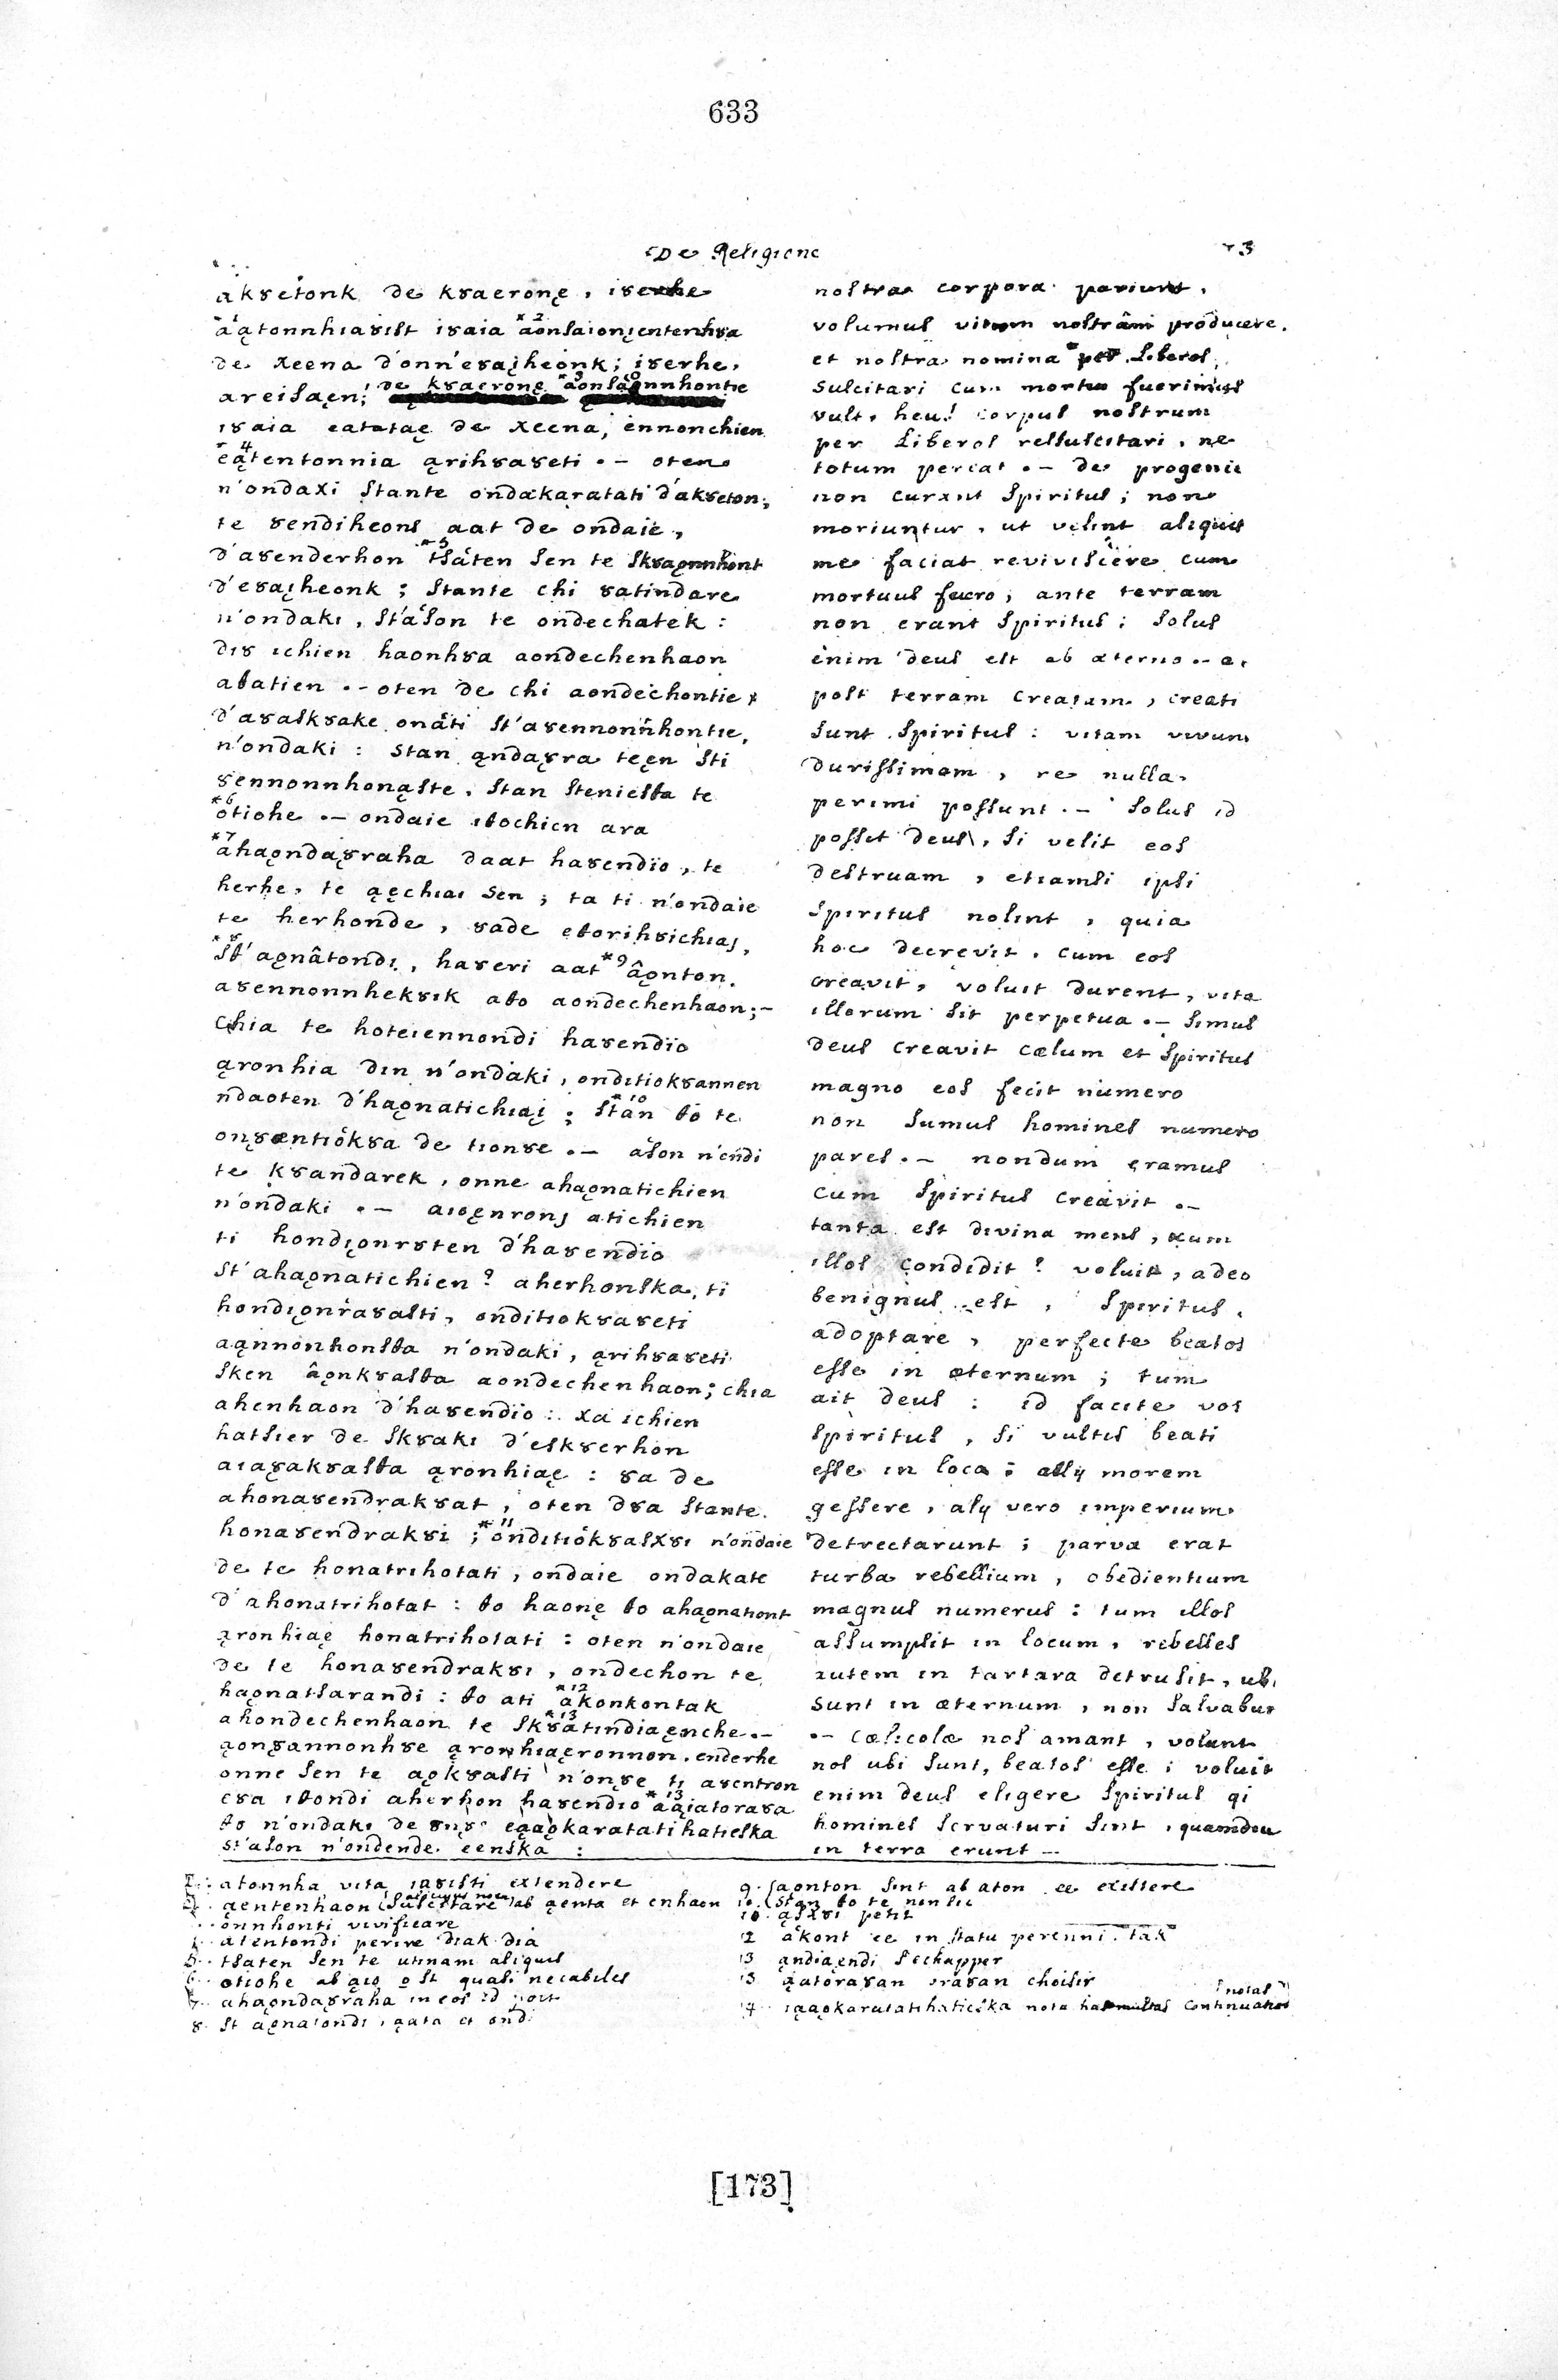 633
De Religione
aksetonk de kȣaeronę, iȣerhe
aątonnhiaȣist iȣaia *2 aonsaionįentenhȣa
de xeena d'onn'eȣaįheonk; iȣerhe,
areisaęn; de kȣaeronę *3 aonsaǫnnhontie
iȣaia eatataę de xeena, ennonchien
*4 eątentonnia ąrihȣaȣeti .- oten
n'ondaxi stante ondakaratati d'akȣeton;
te ȣendiheons aat de ondaie,
d'aȣenderhon *5 tsaten sen te skȣaǫnnhont
d'eȣaįheonk; stante chi ȣatindare
n'ondaki, st'ason te ondechatek:
diȣ ichien haonhȣa aondechenhaon
aƀatien .- oten de chi aondechontie
d'aȣaskȣake onati st'aȣennonnhontie,
n'ondaki: stan ąndaȣra teęn sti
ȣennonnhonąste, stan steniesƀa te
*6 otiohe .- ondaie iƀochien ara
*7 ahaǫndaȣraha daat haȣendio, te
herhe, te ąęchiai sen; ta ti n'ondaie
te herhonde, ȣade eƀorihȣichiaj,
*8 sƀ'aǫnâtondi, haȣeri aat *9 âǫnton.
aȣennonnhekȣik aƀo aondechenhaon;-
chia te hoteiennondi haȣendio
ąronhia din n'ondaki, onditiokȣannen
ndaoten d'haǫnatichiaį; *10 stan ƀo te
onȣæntiokȣa de tionȣe .- ason n'endi
te kȣandarek, onne ahaǫnatichien
n'ondaki .- aioęnronj atichien
ti hondįonrȣten d'haȣendio
st'ahaǫnatichien? aherhonska, ti
hondįonraȣasti, onditiokȣaȣeti
aąnnonhonsƀa n'ondaki, ąrihȣaȣeti
sken âǫnkȣasƀa aondechenhaon; chia
ahenhaon d'haȣendio: xa ichien
hatsier de skȣaki d'eskȣerhon
aiaȣakȣasƀa ąronhiaę: ȣa de
ahonaȣendrakȣat, oten dȣa stante
honaȣendrakȣi; *11 onditiokȣasxȣi n'ondaie
de te honatrihotati, ondaie ondakate
d'ahonatrihotat: ƀo haonę ƀo ahaǫnationt
ąronhiaę honatrihotati: oten n'ondaie
de te honaȣendrakȣi, ondechon te
haǫnatsarandi: ƀo ati *12 akonkontak
ahondechenhaon te sk*13ȣatindiaęnche .-
ąonȣannonhȣe ąronhiaęronnon, enderhe
onne sen te aǫkȣasti n'onȣe ti aȣentron
eȣa iƀondi aherhon haȣendio *13 aąiatoraȣa
ƀo n'ondaki de eąaǫkaratatihatieska
st'ason n'ondende eenska:
nostra corpora pariunt,
volumus vitam nostrâm producere,
et nostra nomina per Liberos,
suscitari cum mortui fuerimus
vult, heu! corpus nostrum
per Liberos ressuscitari, ne
totum pereat .- de progenie
non curant Spiritus; non
moriuntur, ut velint aliquis
me faciat reviviscere cum
mortuus fuero; ante terram
non erant Spiritus; Solus
enim deus est ab æterno .- at
post terram creatam, creati
sunt Spiritus: vitam vivunt
durissimam, re nulla
perimi possunt .- Solus id
posset deus, si velit eos
destruam, etiamsi ipsi
Spiritus nolint, quia
hoc decrevit, cum eos
creavit, voluit durent, vita
illorum sit perpetua .- Simul
deus creavit cælum et Spiritus
magno eos fecit numero
non sumus homines numero
pares .- nondum eramus
cum Spiritus creavit .-
tanta est divina mens, cum
illos condidit? voluit, adeo
benignus est, Spiritus,
adoptare, perfecte beatos
esse in æternum; tum
ait deus: id facite vos
Spiritus, si vultis beati
esse in loca; alij morem
gessere, alij vero imperium
detrectarunt; parva erat
turba rebellium, obedientium
magnus numerus: tum illos
assumpsit in locum, rebelles
autem in tartara detrusit, ubi
sunt in æternum, non salvabut
.- cælicolæ nos amant, volunt
nos ubi sunt, beatos esse; voluit
enim deus eligere Spiritus qi
homines servaturi sint, quamdiu
in terra erunt --
atonnha vita iaȣisti extendere
ąentenhaon (suscitare) ab ąenta et enhaon
onnhonti vivificare
atentondi perire diak dia
5 tsaten sen te utinam aliquis
6 otiohe ab ąio o st quasi necabiles
7 ahaǫndaȣraha in eos id
8 st aǫnatondi, ąata et ondi
9 aonton sint ab aton ee existere
10 stan ƀo te
ąsxȣi petit
12 akont ee in statu perenni. tak
13 ąndiaęndi s'echapper
13 ąatoraȣan choisir
14 iąaǫkaratatihatieska nota has multas continuatas notas
[173]